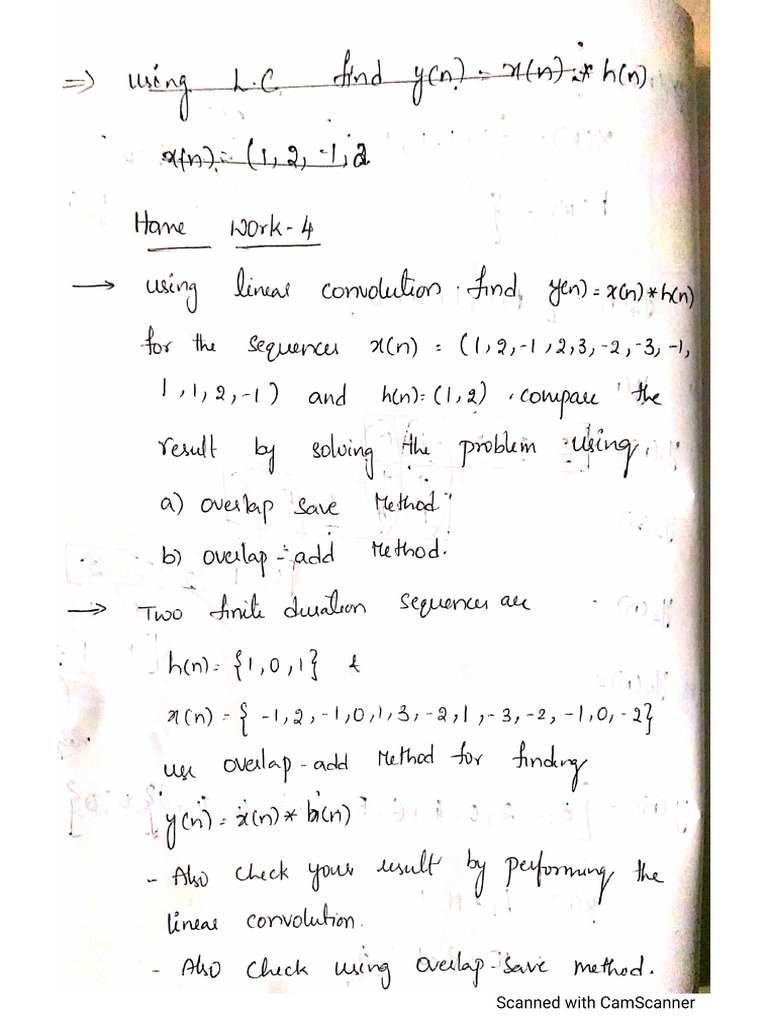 ⇒ using L.C find y(n) = x(n) * h(n)
x(n) = (1, 2, -1, 2
Home Work-4
→ using linear convolution find y(n) = x(n) * h(n)
for the sequences x(n) = (1, 2, -1, 2, 3, -2, -3, -1,
1, 1, 2, -1) and h(n) = (1, 2). compare the
result by solving the problem using.
a) overlap save Method
b) overlap-add Method.
→ Two finite duration sequences are
h(n) = {1, 0, 1} &
x(n) = { -1, 2, -1, 0, 1, 3, -2, 1, -3, -2, -1, 0, -2}
use overlap-add Method for finding
y(n) = x(n) * h(n)
- Also check your result by performing the
linear convolution.
- Also check using overlap-save method.
Scanned with CamScanner